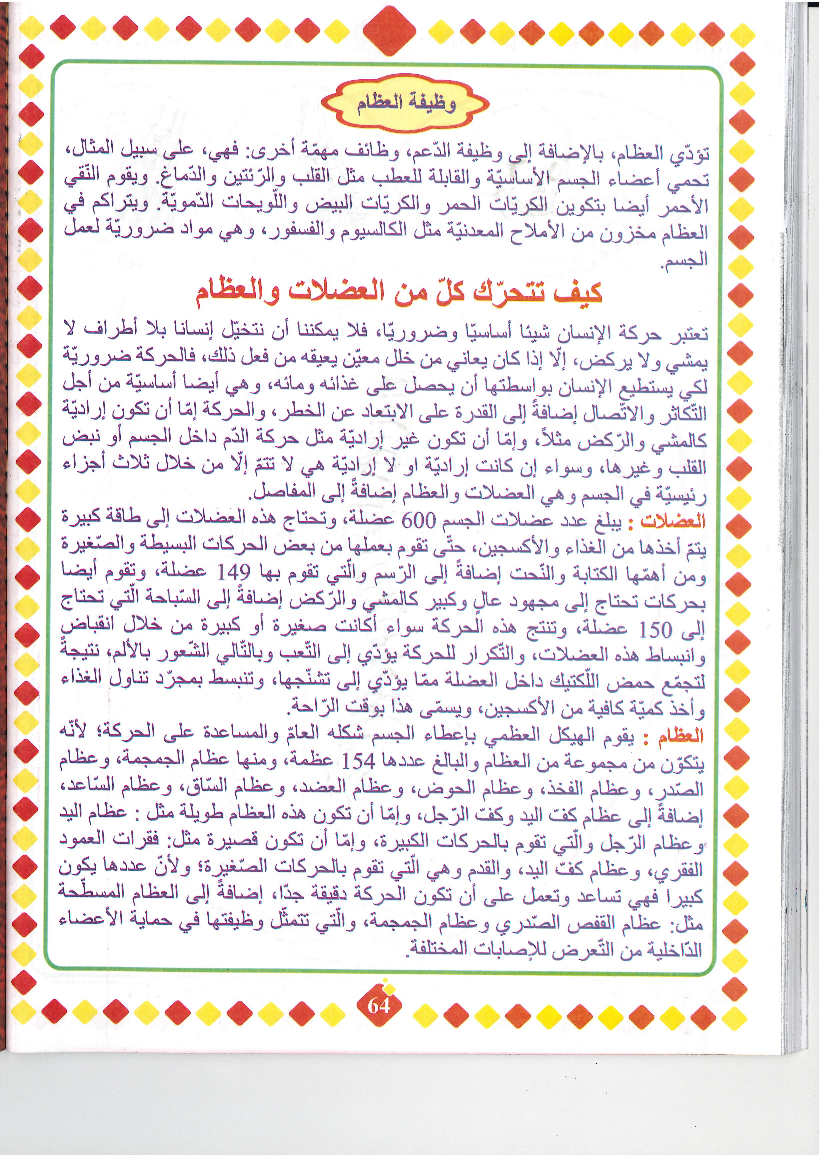 وظيفة العظام
تؤدّي العظام، بالإضافة إلى وظيفة الدّعم، وظائف مهمّة أخرى: فهي، على سبيل المثال،
تحمي أعضاء الجسم الأساسيّة والقابلة للعطب مثل القلب والرّئتين والدّماغ. ويقوم النّقي
الأحمر أيضا بتكوين الكريّات الحمر والكريّات البيض واللّويحات الدّمويّة. ويتراكم في
العظام مخزون من الأملاح المعدنيّة مثل الكالسيوم والفسفور، وهي مواد ضروريّة لعمل
الجسم.
كيف تتحرّك كلّ من العضلات والعظام
تعتبر حركة الإنسان شيئا أساسيّا وضروريّا، فلا يمكننا أن نتخيّل إنسانا بلا أطراف لا
يمشي ولا يركض، إلّا إذا كان يعاني من خلل معيّن يعيقه من فعل ذلك، فالحركة ضروريّة
لكي يستطيع الإنسان بواسطتها أن يحصل على غذائه ومائه، وهي أيضا أساسيّة من أجل
التّكاثر والاتّصال إضافةً إلى القدرة على الابتعاد عن الخطر، والحركة إمّا أن تكون إراديّة
كالمشي والرّكض مثلاً، وإمّا أن تكون غير إراديّة مثل حركة الدّم داخل الجسم أو نبض
القلب وغيرها، وسواء إن كانت إراديّة او لا إراديّة هي لا تتمّ إلّا من خلال ثلاث أجزاء
رئيسيّة في الجسم وهي العضلات والعظام إضافةً إلى المفاصل.
العضلات : يبلغ عدد عضلات الجسم 600 عضلة، وتحتاج هذه العضلات إلى طاقة كبيرة
يتمّ أخذها من الغذاء والأكسجين، حتّى تقوم بعملها من بعض الحركات البسيطة والصّغيرة
ومن أهمّها الكتابة والنّحت إضافةً إلى الرّسم والّتي تقوم بها 149 عضلة، وتقوم أيضا
بحركات تحتاج إلى مجهود عالٍ وكبير كالمشي والرّكض إضافةً إلى السّباحة الّتي تحتاج
إلى 150 عضلة، وتنتج هذه الحركة سواء أكانت صغيرة أو كبيرة من خلال انقباض
وانبساط هذه العضلات، والتّكرار للحركة يؤدّي إلى التّعب وبالتّالي الشّعور بالألم، نتيجةً
لتجمّع حمض اللّكتيك داخل العضلة ممّا يؤدّي إلى تشنّجها، وتنبسط بمجرّد تناول الغذاء
وأخذ كميّة كافية من الأكسجين، ويسمى هذا بوقت الرّاحة.
العظام : يقوم الهيكل العظمي بإعطاء الجسم شكله العامّ والمساعدة على الحركة؛ لأنّه
يتكوّن من مجموعة من العظام والبالغ عددها 154 عظمة، ومنها عظام الجمجمة، وعظام
الصّدر، وعظام الفخذ، وعظام الحوض، وعظام العضد، وعظام السّاق، وعظام السّاعد،
إضافةً إلى عظام كفّ اليد وكفّ الرّجل، وإمّا أن تكون هذه العظام طويلة مثل : عظام اليد
وعظام الرّجل والّتي تقوم بالحركات الكبيرة، وإمّا أن تكون قصيرة مثل: فقرات العمود
الفقري، وعظام كفّ اليد، والقدم وهي الّتي تقوم بالحركات الصّغيرة؛ ولأنّ عددها يكون
كبيرا فهي تساعد وتعمل على أن تكون الحركة دقيقة جدّا، إضافةً إلى العظام المسطّحة
مثل: عظام القفص الصّدري وعظام الجمجمة، والّتي تتمثّل وظيفتها في حماية الأعضاء
الدّاخلية من التّعرض للإصابات المختلفة.
64